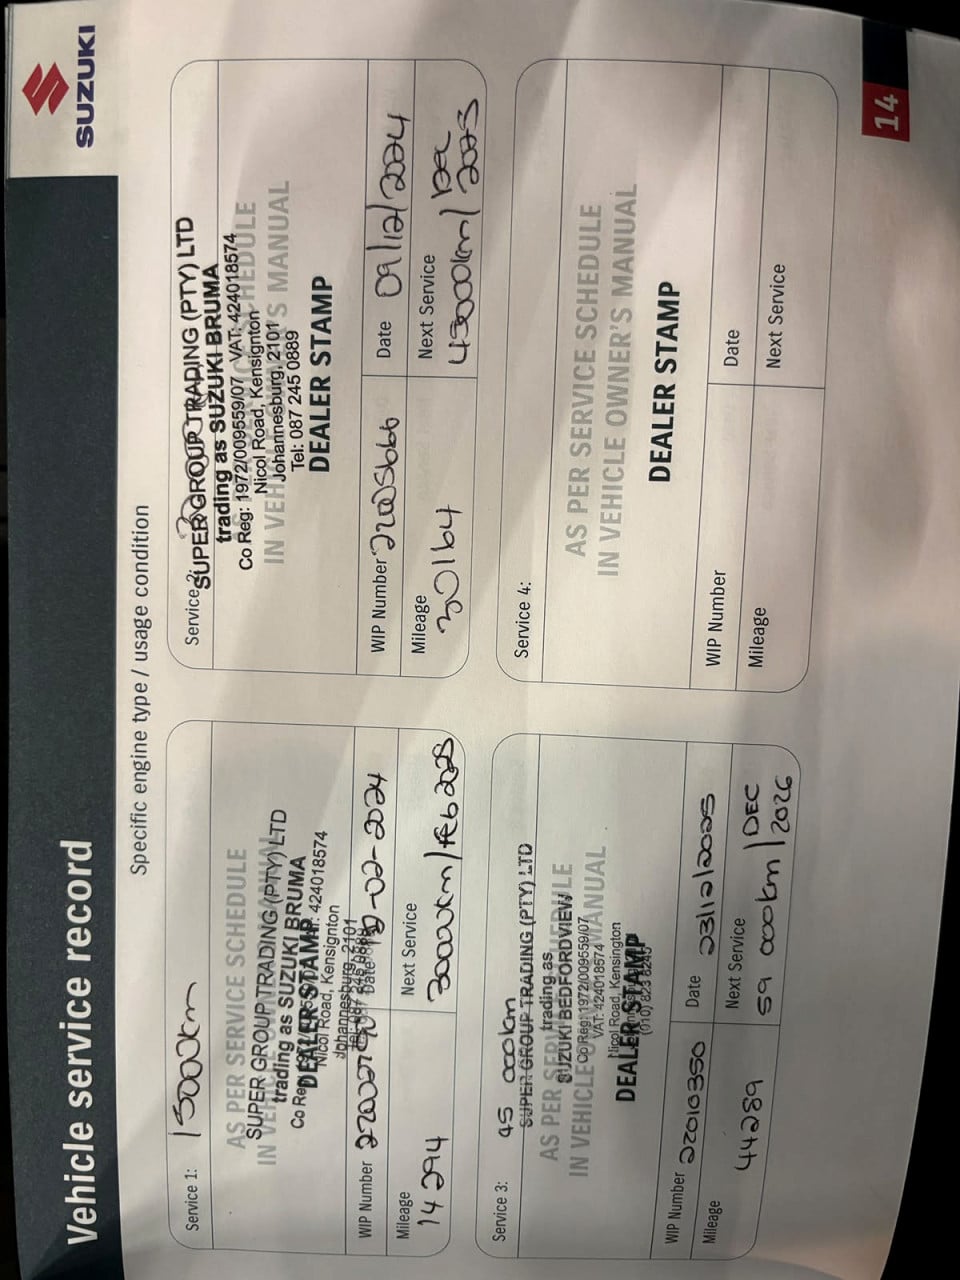 SUZUKI
Vehicle service record
Specific engine type / usage condition
Service 1: 15000km
AS PER SERVICE SCHEDULE
IN VEHICLE OWNER'S MANUAL
SUPER GROUP TRADING (PTY) LTD
trading as SUZUKI BRUMA
DEALER STAMP
Co Reg: VAT: 424018574
Nicol Road, Kensignton
Johannesburg, 2101
Tel: 087 245 0889
WIP Number
Date -02-2024
Mileage
14294
Next Service
30000km/feb 2025
Service 2:
SUPER GROUP TRADING (PTY) LTD
trading as SUZUKI BRUMA
Co Reg: 1972/009559/07 VAT: 424018574
AS PER SERVICE SCHEDULE
Nicol Road, Kensignton
IN VEHICLE OWNER'S MANUAL
Johannesburg, 2101
Tel: 087 245 0889
DEALER STAMP
WIP Number 22005666
Date 09/12/2024
Mileage
30164
Next Service
45000km/Dec
Service 3: 45 000km
SUPER GROUP TRADING (PTY) LTD
AS PER SERVICE SCHEDULE
trading as
SUZUKI BEDFORDVIEW
IN VEHICLE OWNER'S MANUAL
Co Reg: 1972/009559/07
VAT: 424018574
Nicol Road, Kensington
DEALER STAMP
(010) 823 8245
WIP Number 22010350
Date 23/12/2025
Mileage
44289
Next Service
59 000km/DEC
2026
Service 4:
AS PER SERVICE SCHEDULE
IN VEHICLE OWNER'S MANUAL
DEALER STAMP
WIP Number
Date
Mileage
Next Service
14